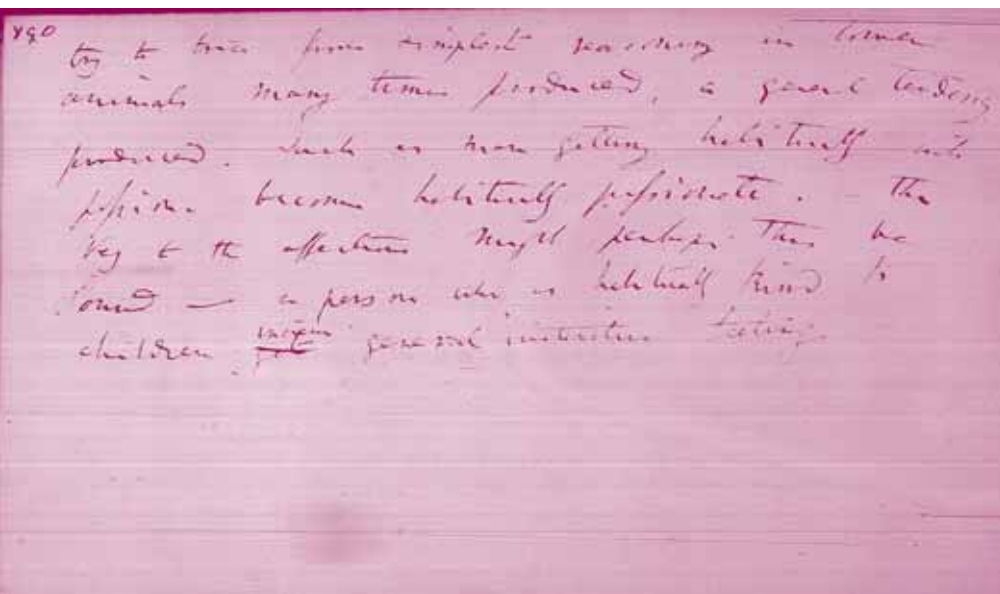 try to trace from simplest reasoning in lower
animals many times produced, a general tendency
produced. Such as man getting habitually into
passion becomes habitually passionate. – The
way to the affections might perhaps thus be
found — a person who is habitually kind to
children, general instinctive feeling